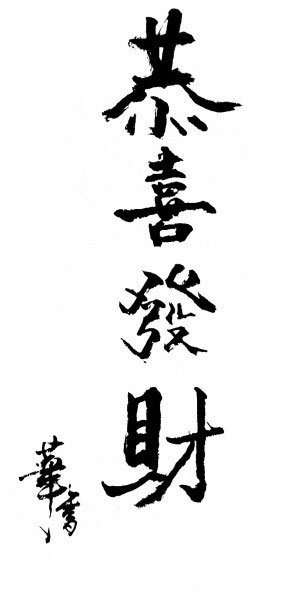 恭喜發財
華書